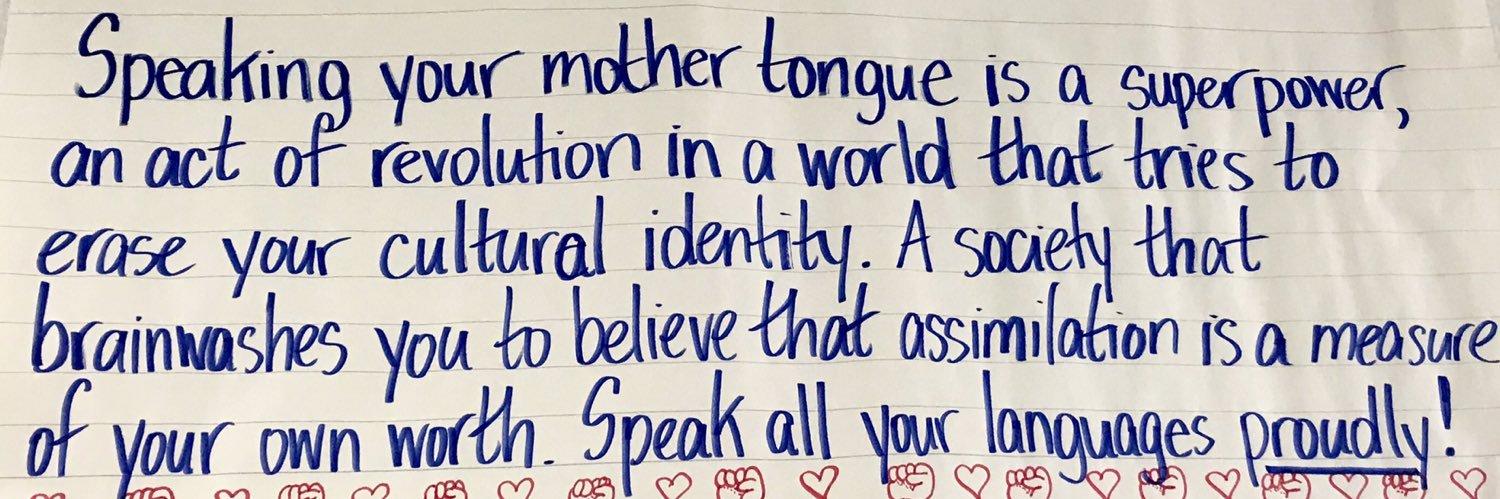 Speaking your mother tongue is a superpower,
an act of revolution in a world that tries to
erase your cultural identity. A society that
brainwashes you to believe that assimilation is a measure
of your own worth. Speak all your languages proudly!